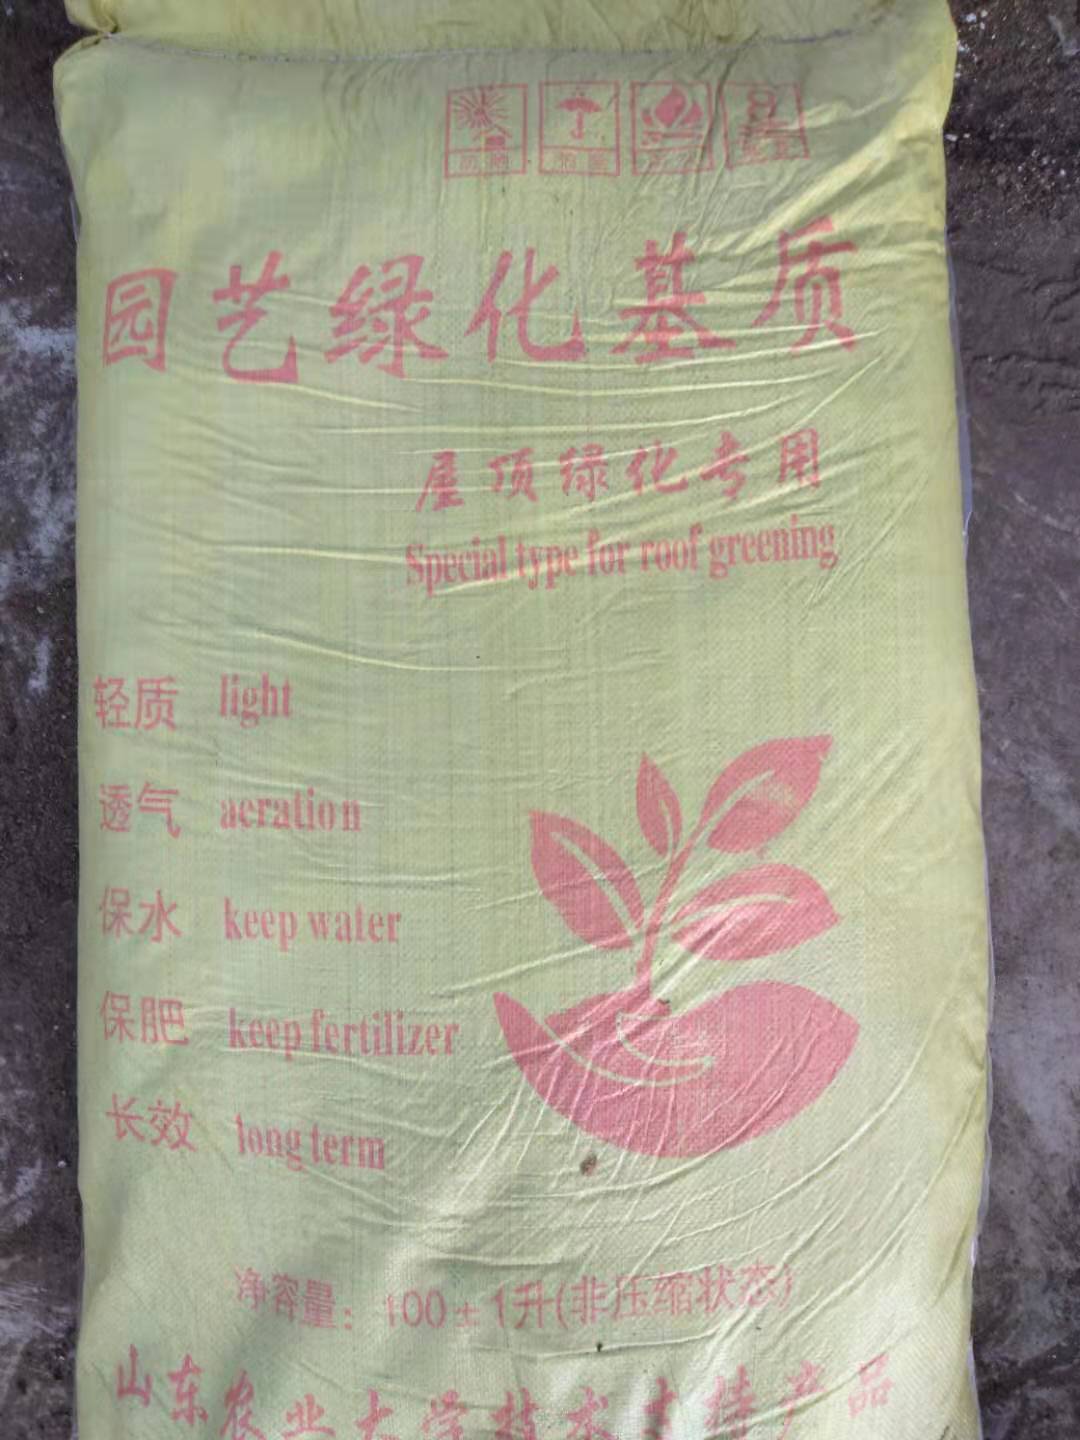 防晒 怕雨
园艺绿化基质
屋顶绿化专用
Special type for roof greening
轻质 light
透气 aeration
保水 keep water
保肥 keep fertilizer
长效 long term
净容量：100±1升(非压缩状态)
山东农业大学技术支持产品